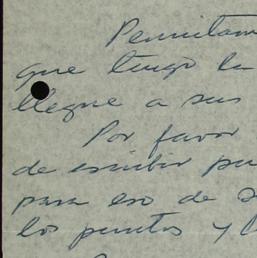 Permitam
que tengo la
llegue a sus
Por favor
de escribir pu
para eso de s
los puntos y l